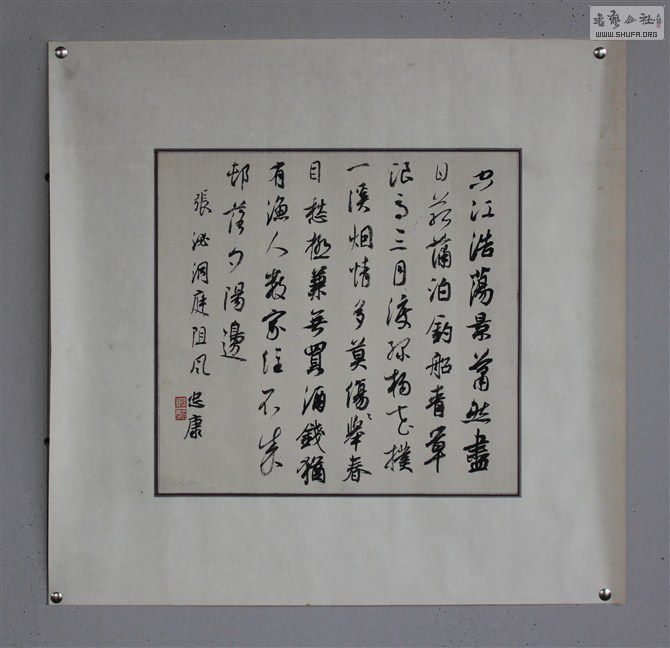 空江浩蕩景蕭然盡
日菰蒲泊釣船青草
浪高三月渡綠楊花撲
一溪烟情多莫傷舉春
目愁極兼無買酒錢猶
有漁人數家住不成
邨落夕陽邊
張泌洞庭阻風
忠康
書藝公社
WWW.SHUFA.ORG